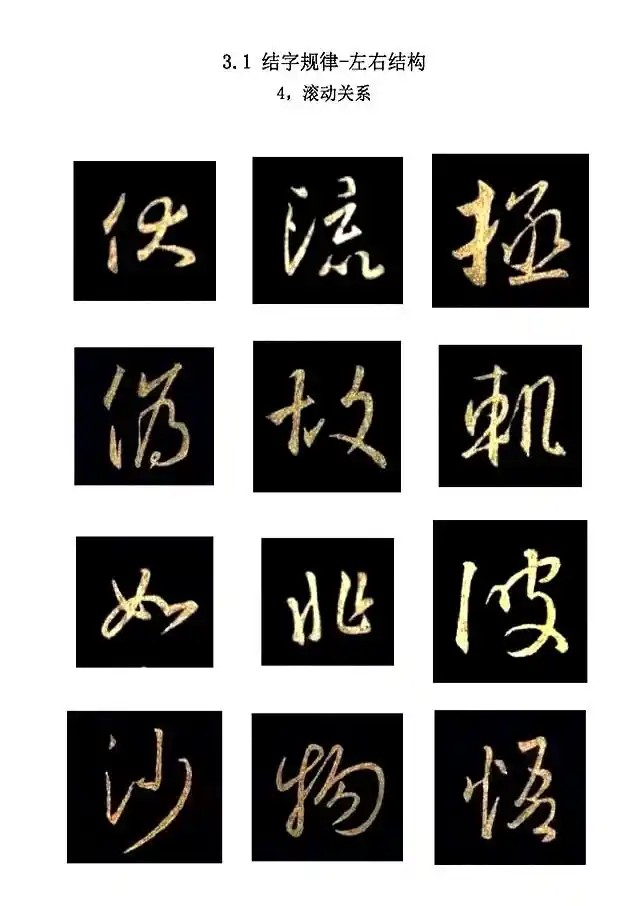 3.1 结字规律-左右结构
4，滚动关系
伏 流 拯
偽 故 軌
如 非 彼
沙 物 悟